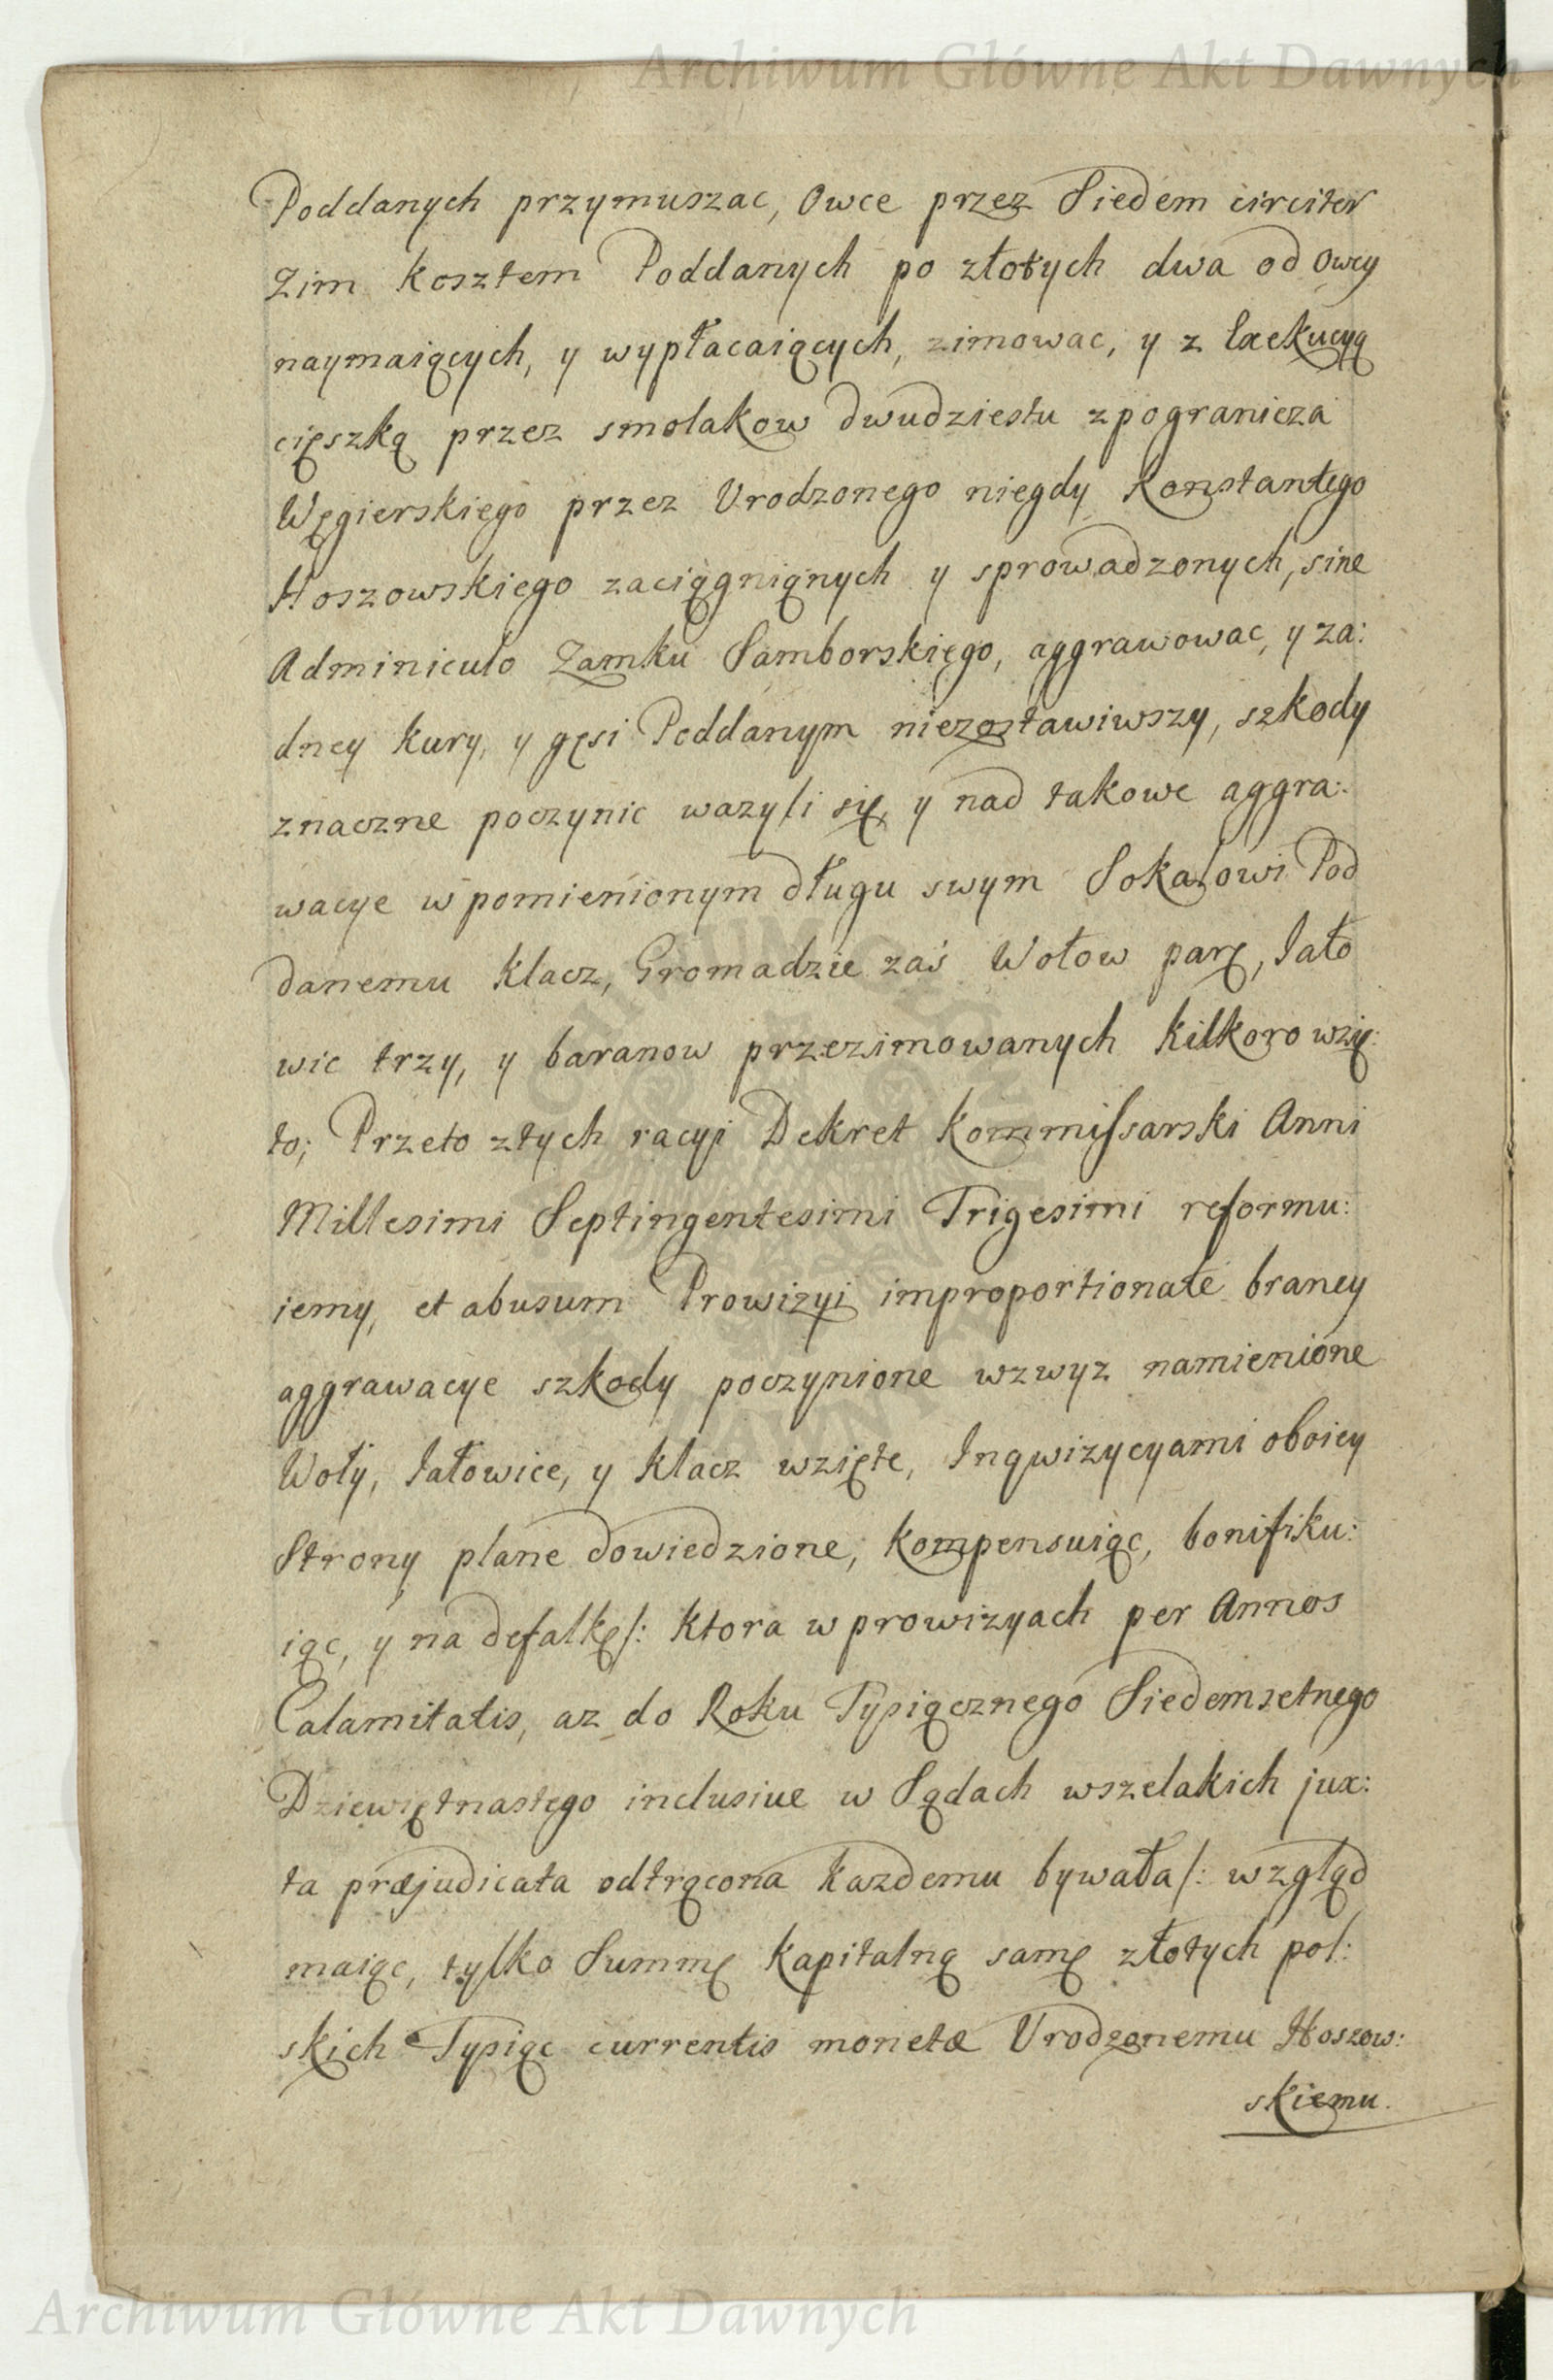 Archiwum Główne Akt Dawnych
Poddanych przymuszac, Owce przez Siedem circiter
Zim kosztem Poddanych po złotych dwa od Owcy
naymaiących, y wypłacaiących, zimowac, y z Exekucyą
cięszką przez smolakow dwudziestu z pogranicza
Węgierskiego przez Urodzonego niegdy Konstantego
Hoszowskiego zaciągniąnych y sprowadzonych, sine
Adminiculo Zamku Samborskiego, aggrawowac, y za:
dney kury, y gęsi Poddanym niezostawiwszy, szkody
znaczne poczynic wazyli się, y nad takowe aggra:
wacye w pomienionym długu swym Sokalowi Pod
danemu klacz, Gromadzie zaś Wołow parę, Iało
wic trzy, y baranow przezimowanych kilkoro wzię:
to; Przeto z tych racyi Dekret Kommissarski Anni
Millesimi Septingentesimi Trigesimi reformu:
iemy, et abusum Prowizyi improportionate braney
aggrawacye szkody poczynione wzwyz namienione
Woły, Iałowice, y klacz wzięte, Inqwizycyami oboiey
Strony plane dowiedzione, kompensuiąc, bonifiku:
iąc, y na defalkę /: ktora w prowizyach per Annos
Calamitatis, az do Roku Tysiącznego Siedemsetnego
Dziewiętnastego inclusiue w Sądach wszelakich jux:
ta præjudicata odtrącona kazdemu bywała /: wzgląd
maiąc, tylko Summę kapitalną samę złotych pol:
skich Tysiąc currentis monetæ Urodzonemu Hoszow:
skiemu.
Archiwum Główne Akt Dawnych